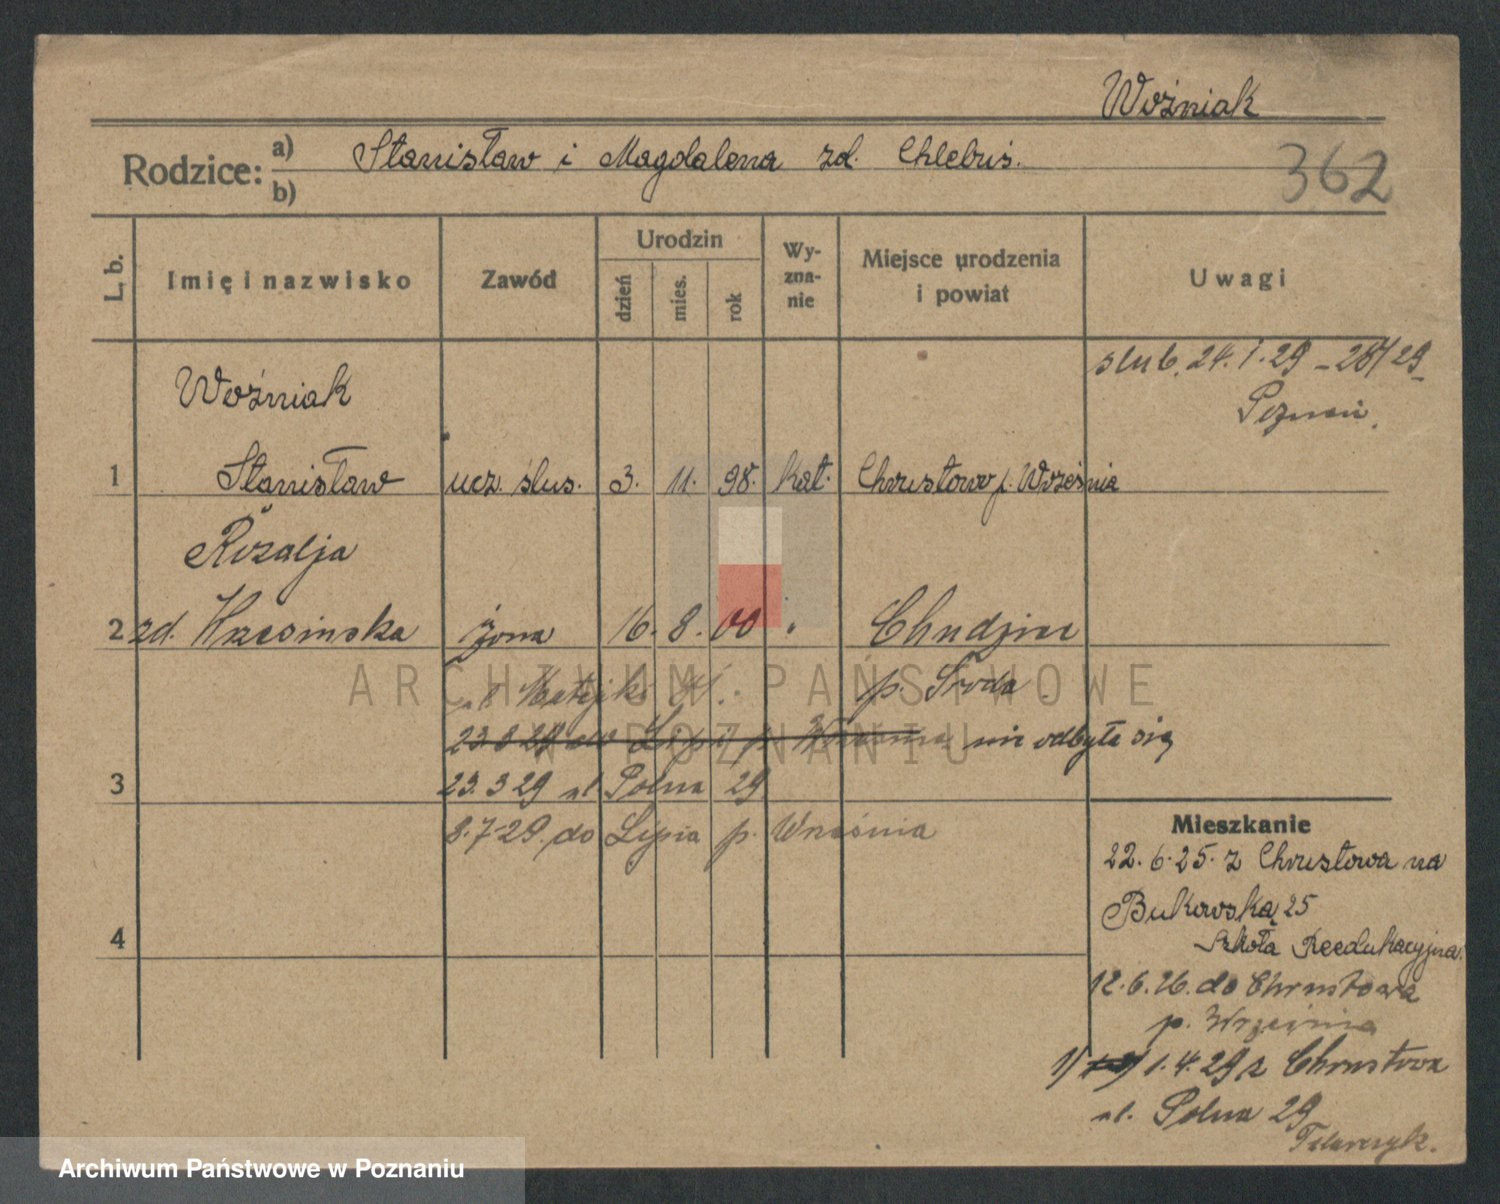 Woźniak
Rodzice: a) Stanisław i Magdalena zd. Chlebuś.
b)
362
L. b.
Imię i nazwisko
Zawód
Urodzin
dzień
mies.
rok
Wy-
zna-
nie
Miejsce urodzenia
i powiat
Uwagi
ślub. 24.1.29 – 28/29
Poznań.
Woźniak
1 Stanisław ucz. ślus. 3. 11. 98. kat. Chrustowo p. Września
Rozalja
2 zd. żona 16. 8. 00 "
p. Środa
ul. Matejki
23.3.29 do Lipia p. Września nie odbyła się
3 23.3 29 ul Polna 29
8.7.29. do Lipia p. Września
4
Mieszkanie
22.6.25. z Chrustowa na
Bukowską 25
Szkoła Reedukacyjna.
12.6.26. do Chrustowa
p. Września
1) 1.4.29 z Chrustowa
ul. Polna 29
ARCHIWUM PAŃSTWOWE
W POZNANIU
Archiwum Państwowe w Poznaniu